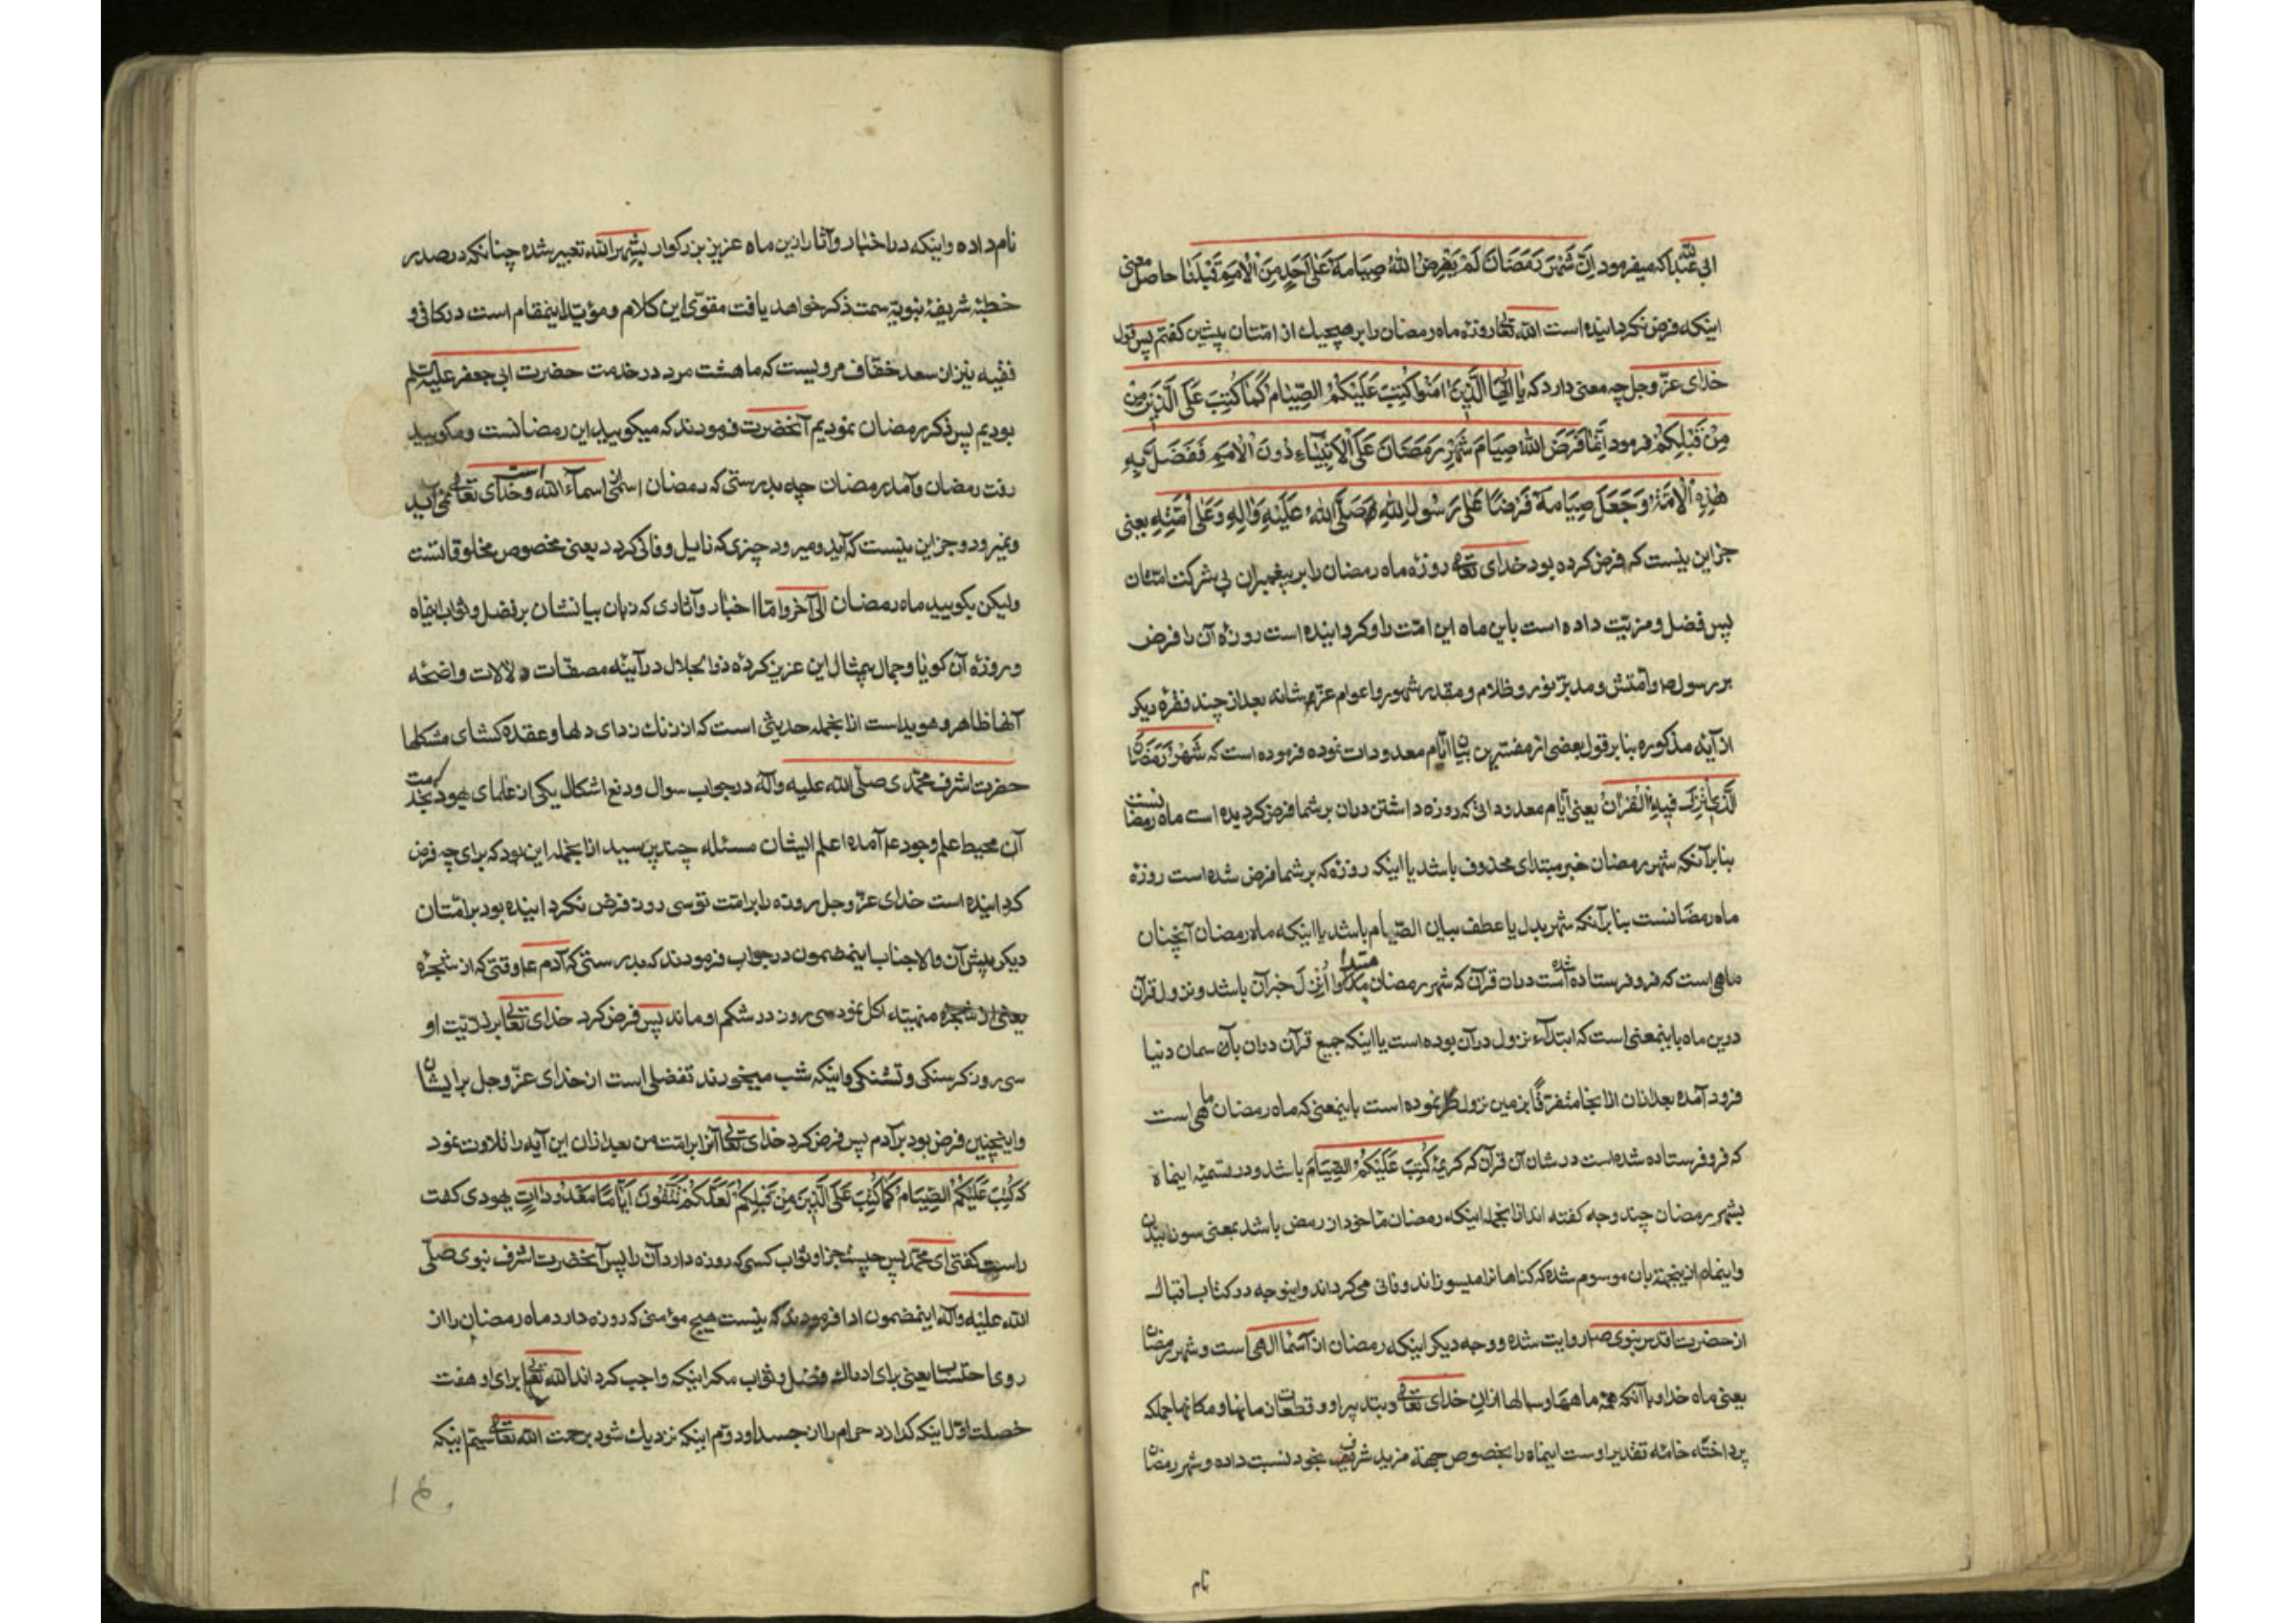 ابی عبدالله که میفرمود اِنَّ شَهْرَ رَمَضَانَ لَمْ يَفْرِضِ اللّٰهُ صِيَامَهُ عَلٰی اَحَدٍ مِنَ الْاُمَمِ قَبْلَنَا حاصل معنی
اینکه فرض نکردانیده است الله تعالی روزهٔ ماه رمضان را بر هیچیک از امتان پیشین کفتم پس قول
خدای عزّ وجل چه معنی دارد که یٰا اَیُّهَا الَّذِینَ اٰمَنُوا كُتِبَ عَلَیْکُمُ الصِّیٰامُ كَمٰا كُتِبَ عَلَی الَّذِینَ مِنْ
مِنْ قَبْلِکُمْ فرمود اِنَّمٰا فَرَضَ اللّٰهُ صِیٰامَ شَهْرِ رَمَضَانَ عَلَی الْاَنْبِیٰاءِ دُونَ الْاُمَمِ فَفَضَّلَ بِهِ
هٰذِهِ الْاُمَّةَ وَجَعَلَ صِیَامَهُ فَرْضًا عَلٰی رَسُولِ اللّٰهِ صَلَّی اللّٰهُ عَلَیْهِ وَاٰلِهِ وَعَلٰی اُمَّتِهِ یعنی
جز این نیست که فرض کرده بود خدای تعالی روزه ماه رمضان را بر پیغمبران بی شرکت امتان
پس فضل و مزیّت داده است باین ماه این امّت را و کردانیده است روزه آن را فرض
بر رسول ص و اُمّتش و مدبّر نور و ظلام و مقدر شهور و اعوام عزّ شانه بعد از چند فقره دیکر
از آیهٔ مذکوره بنا بر قول بعضی از مفسّرین بیان ایّام معدودات نموده فرموده است که شَهْرُ رَمَضَانَ
الَّذِی اُنْزِلَ فِیهِ الْقُرْاٰنُ یعنی آیّام معدوداتی که روزه داشتن دران بر شما فرض کردیده است ماه رمضانست
بنابر آنکه شهر رمضان خبر مبتدای محذوف باشد یا اینکه روزهٔ که بر شما فرض شده است روزهٔ
ماه رمضانست بنابر آنکه شهر بدل یا عطف بیان الصّیام باشد یا اینکه ماه رمضان آنچنان
ماهی است که فرو فرستاده شده است دران قرآن که شهر رمضان مبتدا و اُنْزِلَ خبر آن باشد و نزول قرآن
درین ماه باینمعنی است که ابتداء نزول درآن بوده است یا اینکه جمیع قرآن دران بآسمان دنیا
فرود آمده بعد ازان از انجا متفرّقًا بزمین نزول نموده است باینمعنی که ماه رمضان ماهی است
که فرو فرستاده شده است در شان آن قرآن که کریمهٔ كُتِبَ عَلَیْکُمُ الصِّیَام باشد و در تسمیهٔ اینماه
بشهر رمضان چند وجه کفته اند ازانجمله اینکه رمضان ماخوذ از رمض باشد بمعنی سوزانیدن
و اینماه ازینجهة بان موسوم شده که کناهانرا میسوزاند و فانی می کرداند و اینوجه در کتاب اقبال
از حضرت اقدس نبوی ص روایت شده و وجه دیکر اینکه رمضان از اسماء الهی است و شهر رمضان
یعنی ماه خدا و با آنکه همه ماهها و سالها ازان خدای تعالی و بتدبیر او و قطعات زمانها و مکانها جملکه
پرداختهٔ خامهٔ تقدیر اوست اینماه را بخصوص جهة مزید شرف بخود نسبت داده و شهر رمضان
نام
نام داده و اینکه در اخبار و آثار ازین ماه عزیز بزرکوار بشهر الله تعبیر شده چنانکه در صدر
خطبهٔ شریفهٔ نبویّه سمت ذکر خواهد یافت مقوّی این کلام و مؤیّد اینمقام است در کافی و
فقیه نیز از سعد خفّاف مرویست که ما هشت مرد در خدمت حضرت ابی جعفر علیه السلم
بودیم پس ذکر رمضان نمودیم آنحضرت فرمودند که میکویید این رمضانست و مکویید
رفت رمضان و آمد رمضان چه بدرستی که رمضان اسمی از اسماء الله است و خدای تعالی نمی آید
و نمیرود و جز این نیست که آید و میرود چیزی که زایل و فانی کردد یعنی مخصوص مخلوقاتست
ولیکن بکویید ماه رمضان الی آخر و امّا اخبار و آثاری که زبان بیانشان بر فضل و ثواب اینماه
و روزهٔ آن کویا و جمال بیمثال این عزیز کردهٔ ذوالجلال در آیینه مصفّات دلالات واضحهٔ
آنها ظاهر و هویداست ازانجمله حدیثی است که از زنك زدای دلها و عقده کشای مشکلها
حضرت اشرف محمّدی صلّی الله علیه وآله در جواب سوال و دفع اشکال یکی از علمای یهود بخدمت
آن محیط علم وجود عم آمده اعلم ایشان مسئلهٔ چند پرسید ازانجمله این بود که برای چه فرض
کردانیده است خدای عزّ وجل روزه را بر امّت تو سی روز و فرض نکردانیده بود بر امّتان
دیکر پیش آن والا جناب اینمضمون در جواب فرمودند که بدرستی که آدم ع وقتی که از شجرهٔ
منهیّه اکل نمود سی روز در شکم او ماند پس فرض کرد خدای تعالی بر ذریّت او
سی روز کرسنکی و تشنکی و اینکه شب میخورند تفضلی است از خدای عزّ وجل بر ایشان
و اینچنین فرض بود بر آدم پس فرض کرد خدای تعالی آنرا بر امّت من بعد ازان این آیه را تلاوت نمود
که كُتِبَ عَلَیْکُمُ الصِّیَامُ كَمٰا كُتِبَ عَلَی الَّذِینَ مِنْ قَبْلِکُمْ لَعَلَّکُمْ تَتَّقُونَ اَیَّامًا مَعْدُودَاتٍ یهودی کفت
راست کفتی ای محمّد پس چیست جزا و ثواب کسی که روزه دارد آن را پس آنحضرت اشرف نبوی صلّی
الله علیه وآله اینمضمون ادا فرمودند که نیست هیچ مؤمنی که روزه دارد ماه رمضان را از
روی احتساب یعنی برای ادراك فضل و ثواب مکر اینکه واجب کرداند الله تعالی برای او هفت
خصلت اوّل اینکه کدازد حرام را از جسد او دوّم اینکه نزدیك شود برحمت الله تعالی سیّم اینکه